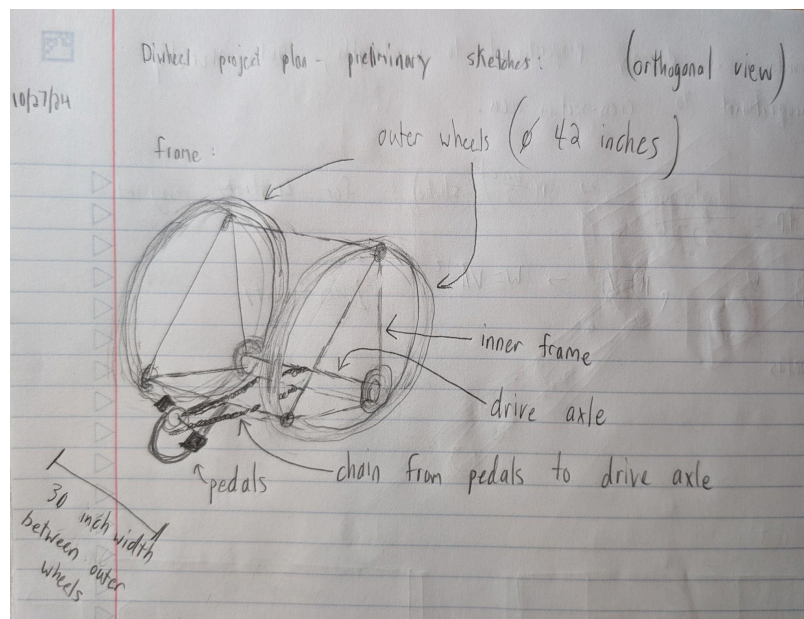 Diwheel project plan - preliminary sketches:
(orthogonal view)
10/27/24
frame:
outer wheels (⌀ 42 inches)
inner frame
drive axle
chain from pedals to drive axle
pedals
30 inch width
between outer
wheels